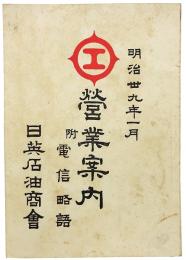 明治廿九年一月
工
營業案内
附電信略語
日英石油商會